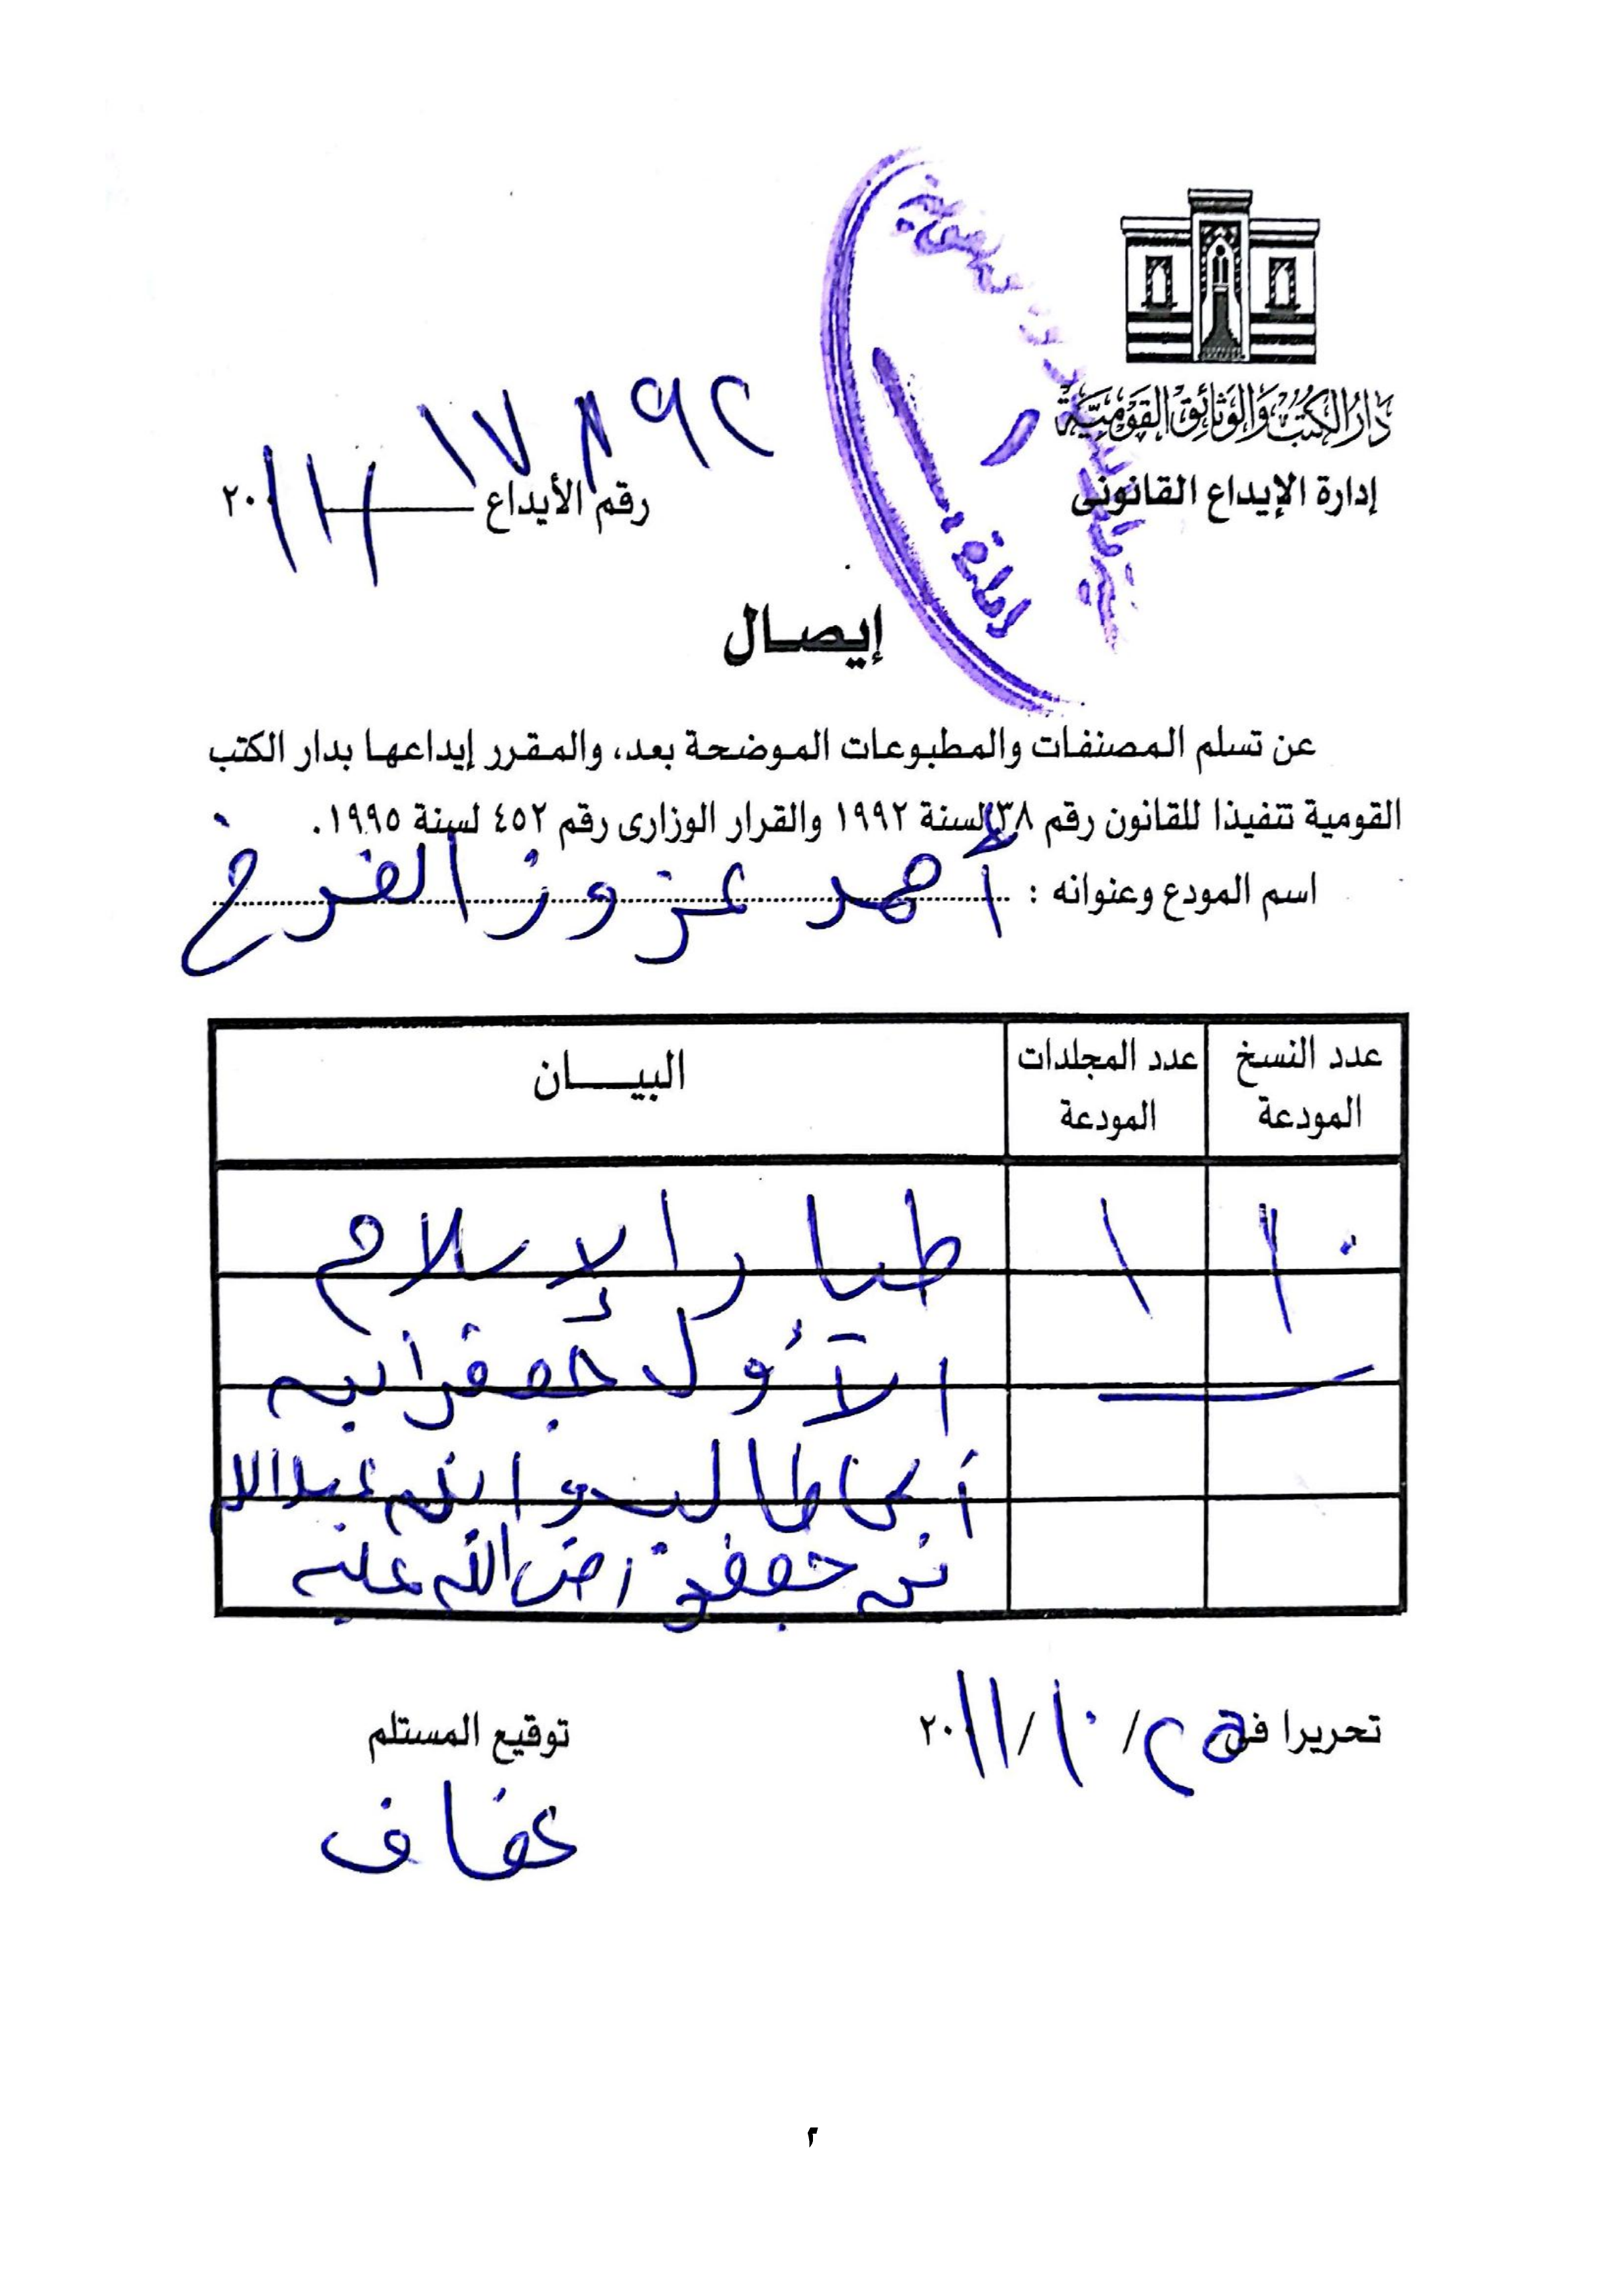 دار الكتب والوثائق القومية
إدارة الإيداع القانونى
رقم الأيداع ١٧٨٩٢ / ٢٠١١
إيصال
عن تسلم المصنفات والمطبوعات الموضحة بعد، والمقرر إيداعها بدار الكتب
القومية تنفيذا للقانون رقم ٣٨ لسنة ١٩٩٢ والقرار الوزارى رقم ٤٥٢ لسنة ١٩٩٥.
اسم المودع وعنوانه : أحمد عزوز الفرخ
عدد النسخ المودعة
عدد المجلدات المودعة
البيـــان
١٠ ١ طيار الإسلام
الأول جعفر ابن
أبى طالب و ابنه عبدالله
بن جعفر رضى الله عنه
تحريرا فى ٢٥ / ١٠ / ٢٠١١
توقيع المستلم
عفاف
٢